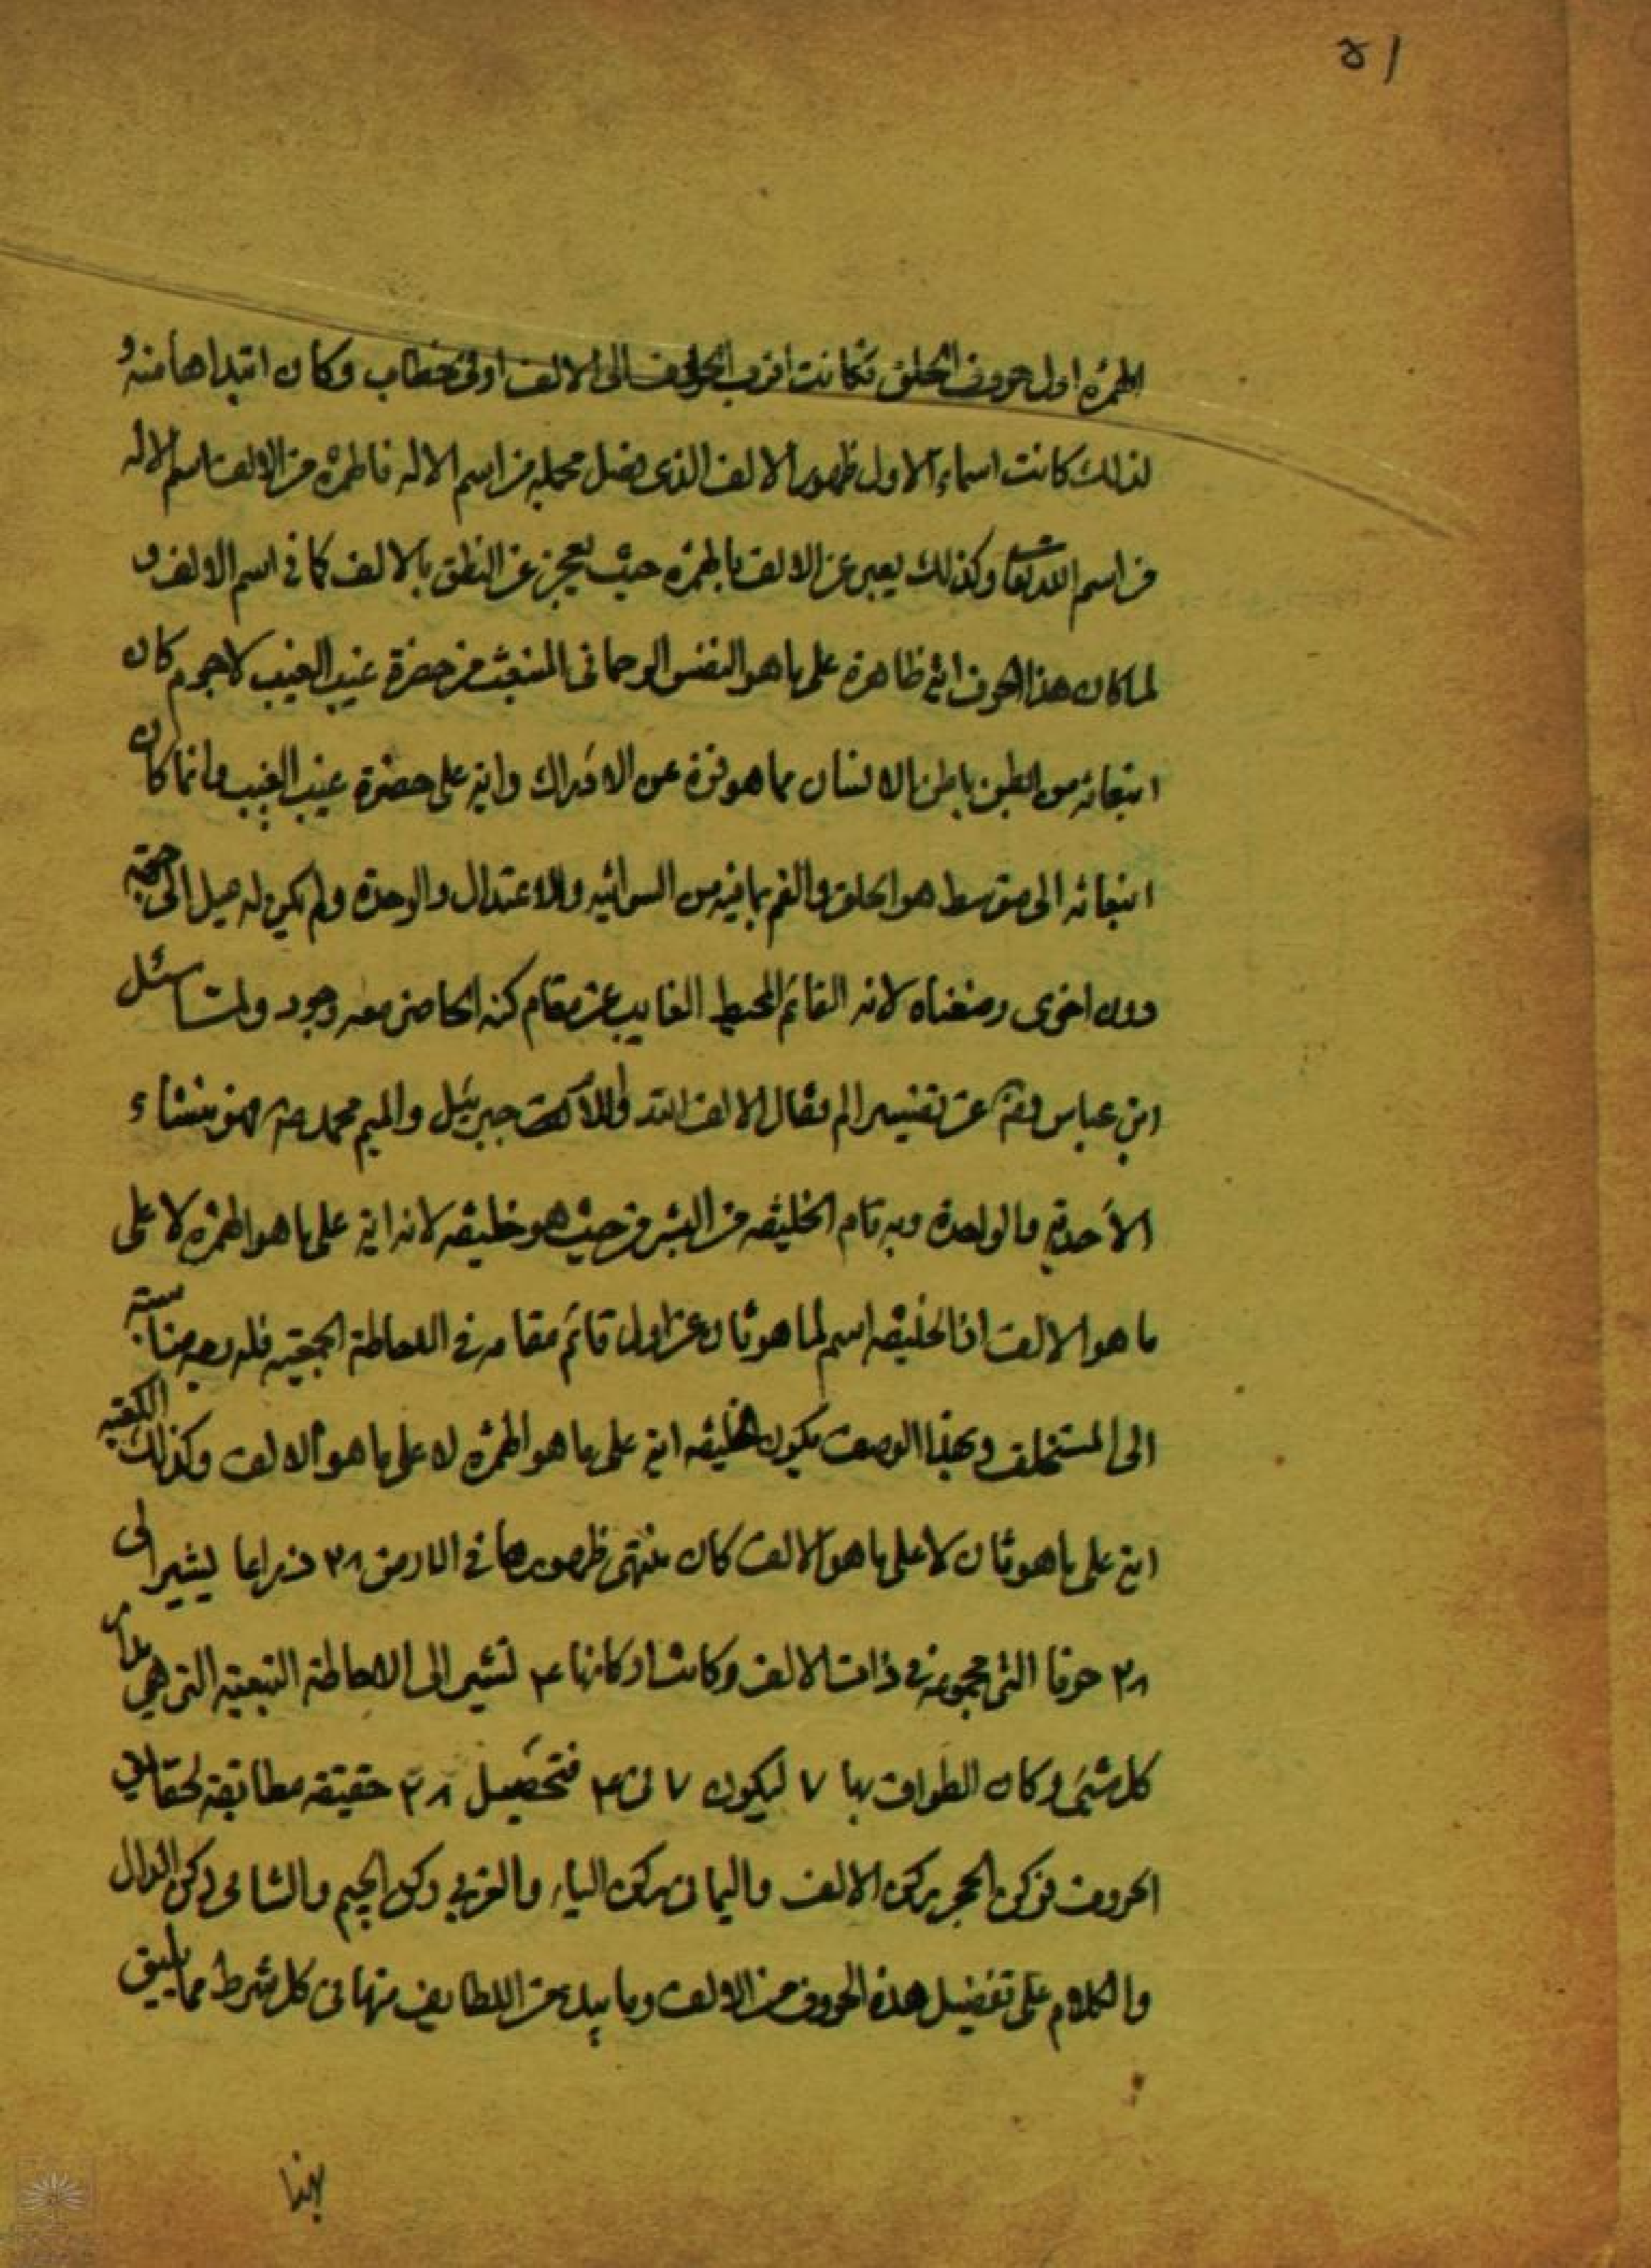 ۵۱
الهمزة اول حروف الحلق فكانت اقرب الحروف الى الالف اولى بخطاب وكان ابتداها منه و
لذلك كانت اسماء الاول ظهور الالف الذى محله من اسم الاله فالهمزة من الالف اسم الاله
من اسم الله تعا وكذلك يعبر عن الالف بالهمزة حيث يعجز عن النطق بالالف كما فى اسم الالف و
لما كان هذا الحرف اية ظاهرة على ما هو النفس الرحمانى المنبعث من حضرة غيب الغيب لاجرم كان
انبعاثه من ابطن باطن الانسان مما هو فوة عن الادراك واية على حضرة غيب الغيب وانما كان
انبعاثه الى متوسط هو الحلق والفم بما فيه من السوائيه والاعتدال والوحدة ولم يكن له ميل الى جهته
دون اخرى وضعناه لانه القائم المحيط الغايب عن مقام كنه الحاضر معه وجود ولما سئل
ابن عباس رضه عن تفسير الم فقال الالف الله واللام جبرئيل والميم محمد فهو منشاء
الأحدية والواحدة وبه قام الخليفه من البشر من حيث هو خليفه لانه اية على ما هو الهمزة لا على
ما هو الالف اذ الخليفه اسم لما هو ثان عن اول قائم مقامه فى الاحاطة الجمعيه فله وجه مناسبته
الى المستخلف وبهذا الوصف يكون الخليفه اية على ما هو الهمزة لا على ما هو الالف وكذلك الكعبه
اية على ما هو ثان لا على ما هو الالف كان منتهى ظهورها فى الارض ٢٨ ذراعا ليشير الى
٢٨ حرفا التى مجموعة فى ذات الالف وكانت اركانها ۴ لتشير الى الاحاطة التبعية التى هى
كل شئ وكان الطواف بها ٧ ليكون ٧ فى ۴ فتحصيل ٢٨ حقيقة مطابقة لحقائق
الحروف فركن الحجر ركن الالف واليمانى ركن الباء والغربى ركن الجيم والشامى ركن الدال
والكلام على تفضيل هذه الحروف من الالف وما من اللطايف منها فى كل شرط مما يليق
بهذا